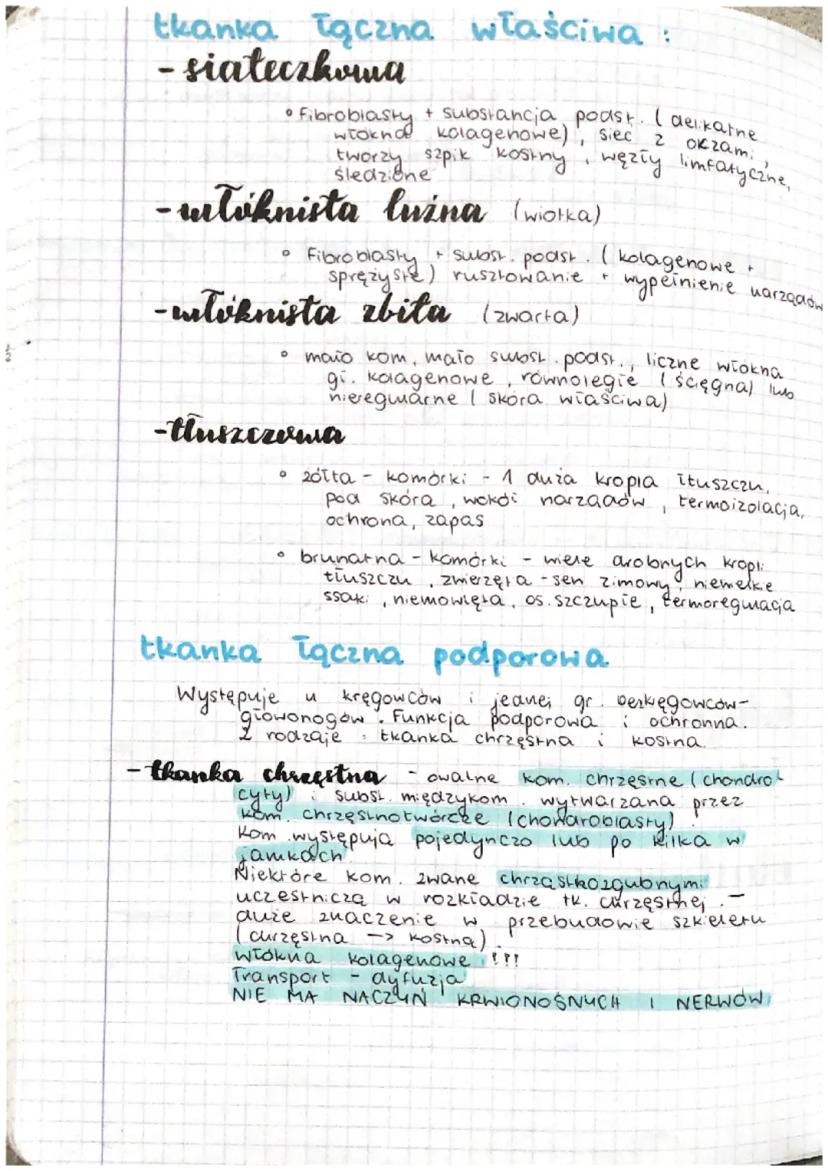 tkanka łączna właściwa :
- siateczkowa
° Fibroblasty + substancja podst. ( delikatne
włókna kolagenowe) , sieć z okzami,
tworzy szpik kostny , węzły limfatyczne,
śledzione
- włóknista luźna (wiotka)
° Fibroblasty + subst. podst. ( kolagenowe +
sprężyste) rusztowanie + wypełnienie narządów
- włóknista zbita (zwarta)
° mało kom, mało subst. podst., liczne włókna
gł. kolagenowe , równoległe ( ścięgna) lub
nieregularne ( skóra właściwa)
- tłuszczowa
° żółta - komórki - 1 duża kropla tłuszczu,
pod skórą , wokół narządów , termoizolacja,
ochrona, zapas
° brunatna - komórki - wiele drobnych kropli
tłuszczu , zwierzęta - sen zimowy, niewielkie
ssaki , niemowlęta, os. szczupłe , termoregulacja
tkanka łączna podporowa
Występuje u kręgowców i jednej gr. bezkęgowców-
głowonogów . Funkcja podporowa i ochronna.
2 rodzaje : tkanka chrzęstna i kostna
- tkanka chrzęstna - owalne kom. chrzęstne ( chondro-
cyty) i subst. międzykom. wytwarzana przez
kom. chrzęstnotwórcze (chondroblasty) .
Kom. występują pojedynczo lub po kilka w
jamkach
Niektóre kom. zwane chrząstkozgubnymi
uczestniczą w rozkładzie tk. chrzęstnej . -
duże znaczenie w przebudowie szkieletu
( chrzęstna -> kostna) .
włókna kolagenowe !!!
Transport - dyfuzja
NIE MA NACZYŃ KRWIONOŚNYCH I NERWÓW